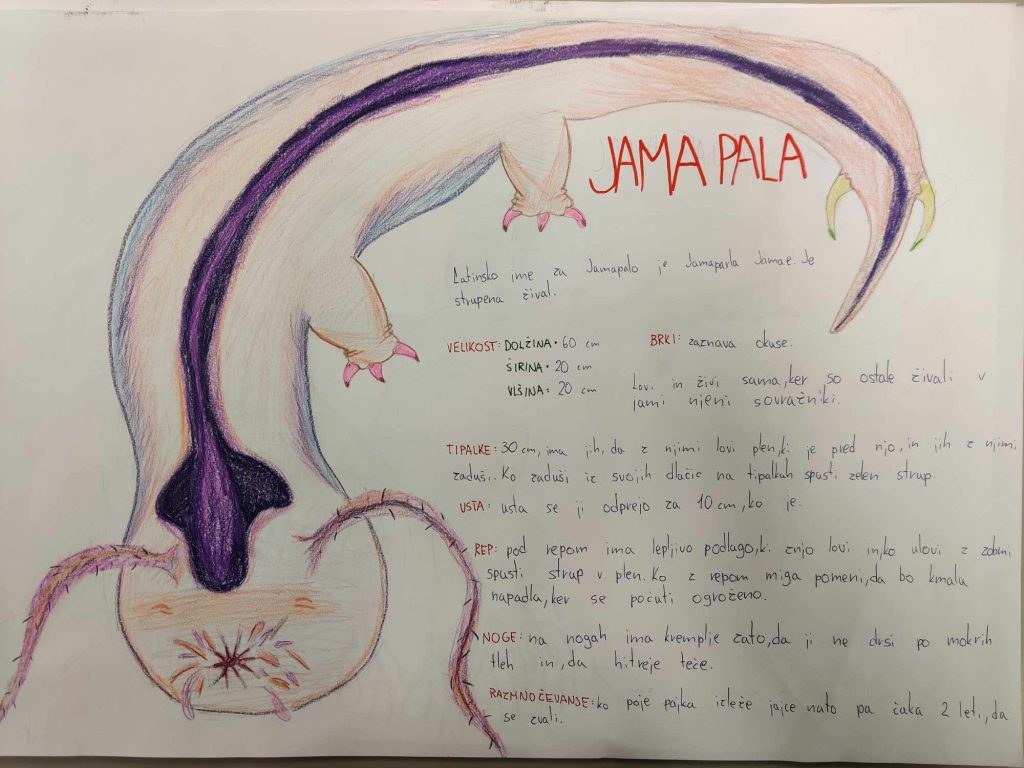 JAMA PALA
Latinsko ime za Jamapalo je Jamaparla Jamae. Je
strupena žival.
VELIKOST: DOLŽINA • 60 cm
ŠIRINA • 20 cm
VIŠINA: 20 cm
BRKI: zaznava okuse.
Lovi in živi sama, ker so ostale živali v
jami njeni sovražniki.
TIPALKE: 30 cm, ima jih, da z njimi lovi plen, ki je pred njo, in jih z njimi
zaduši. Ko zaduši iz svojih dlačic na tipalkah spusti zelen strup.
USTA: usta se ji odprejo za 10 cm, ko je.
REP: pod repom ima lepljivo podlago, ki znjo lovi in, ko ulovi z zobmi
spusti strup v plen. Ko z repom miga pomeni, da bo kmalu
napadla, ker se počuti ogroženo.
NOGE: na nogah ima kremplje zato, da ji ne drsi po mokrih
tleh in, da hitreje teče.
RAZMNOČEVANJE: ko poje pajka izleže jajce nato pa čaka 2 leti, da
se zvali.